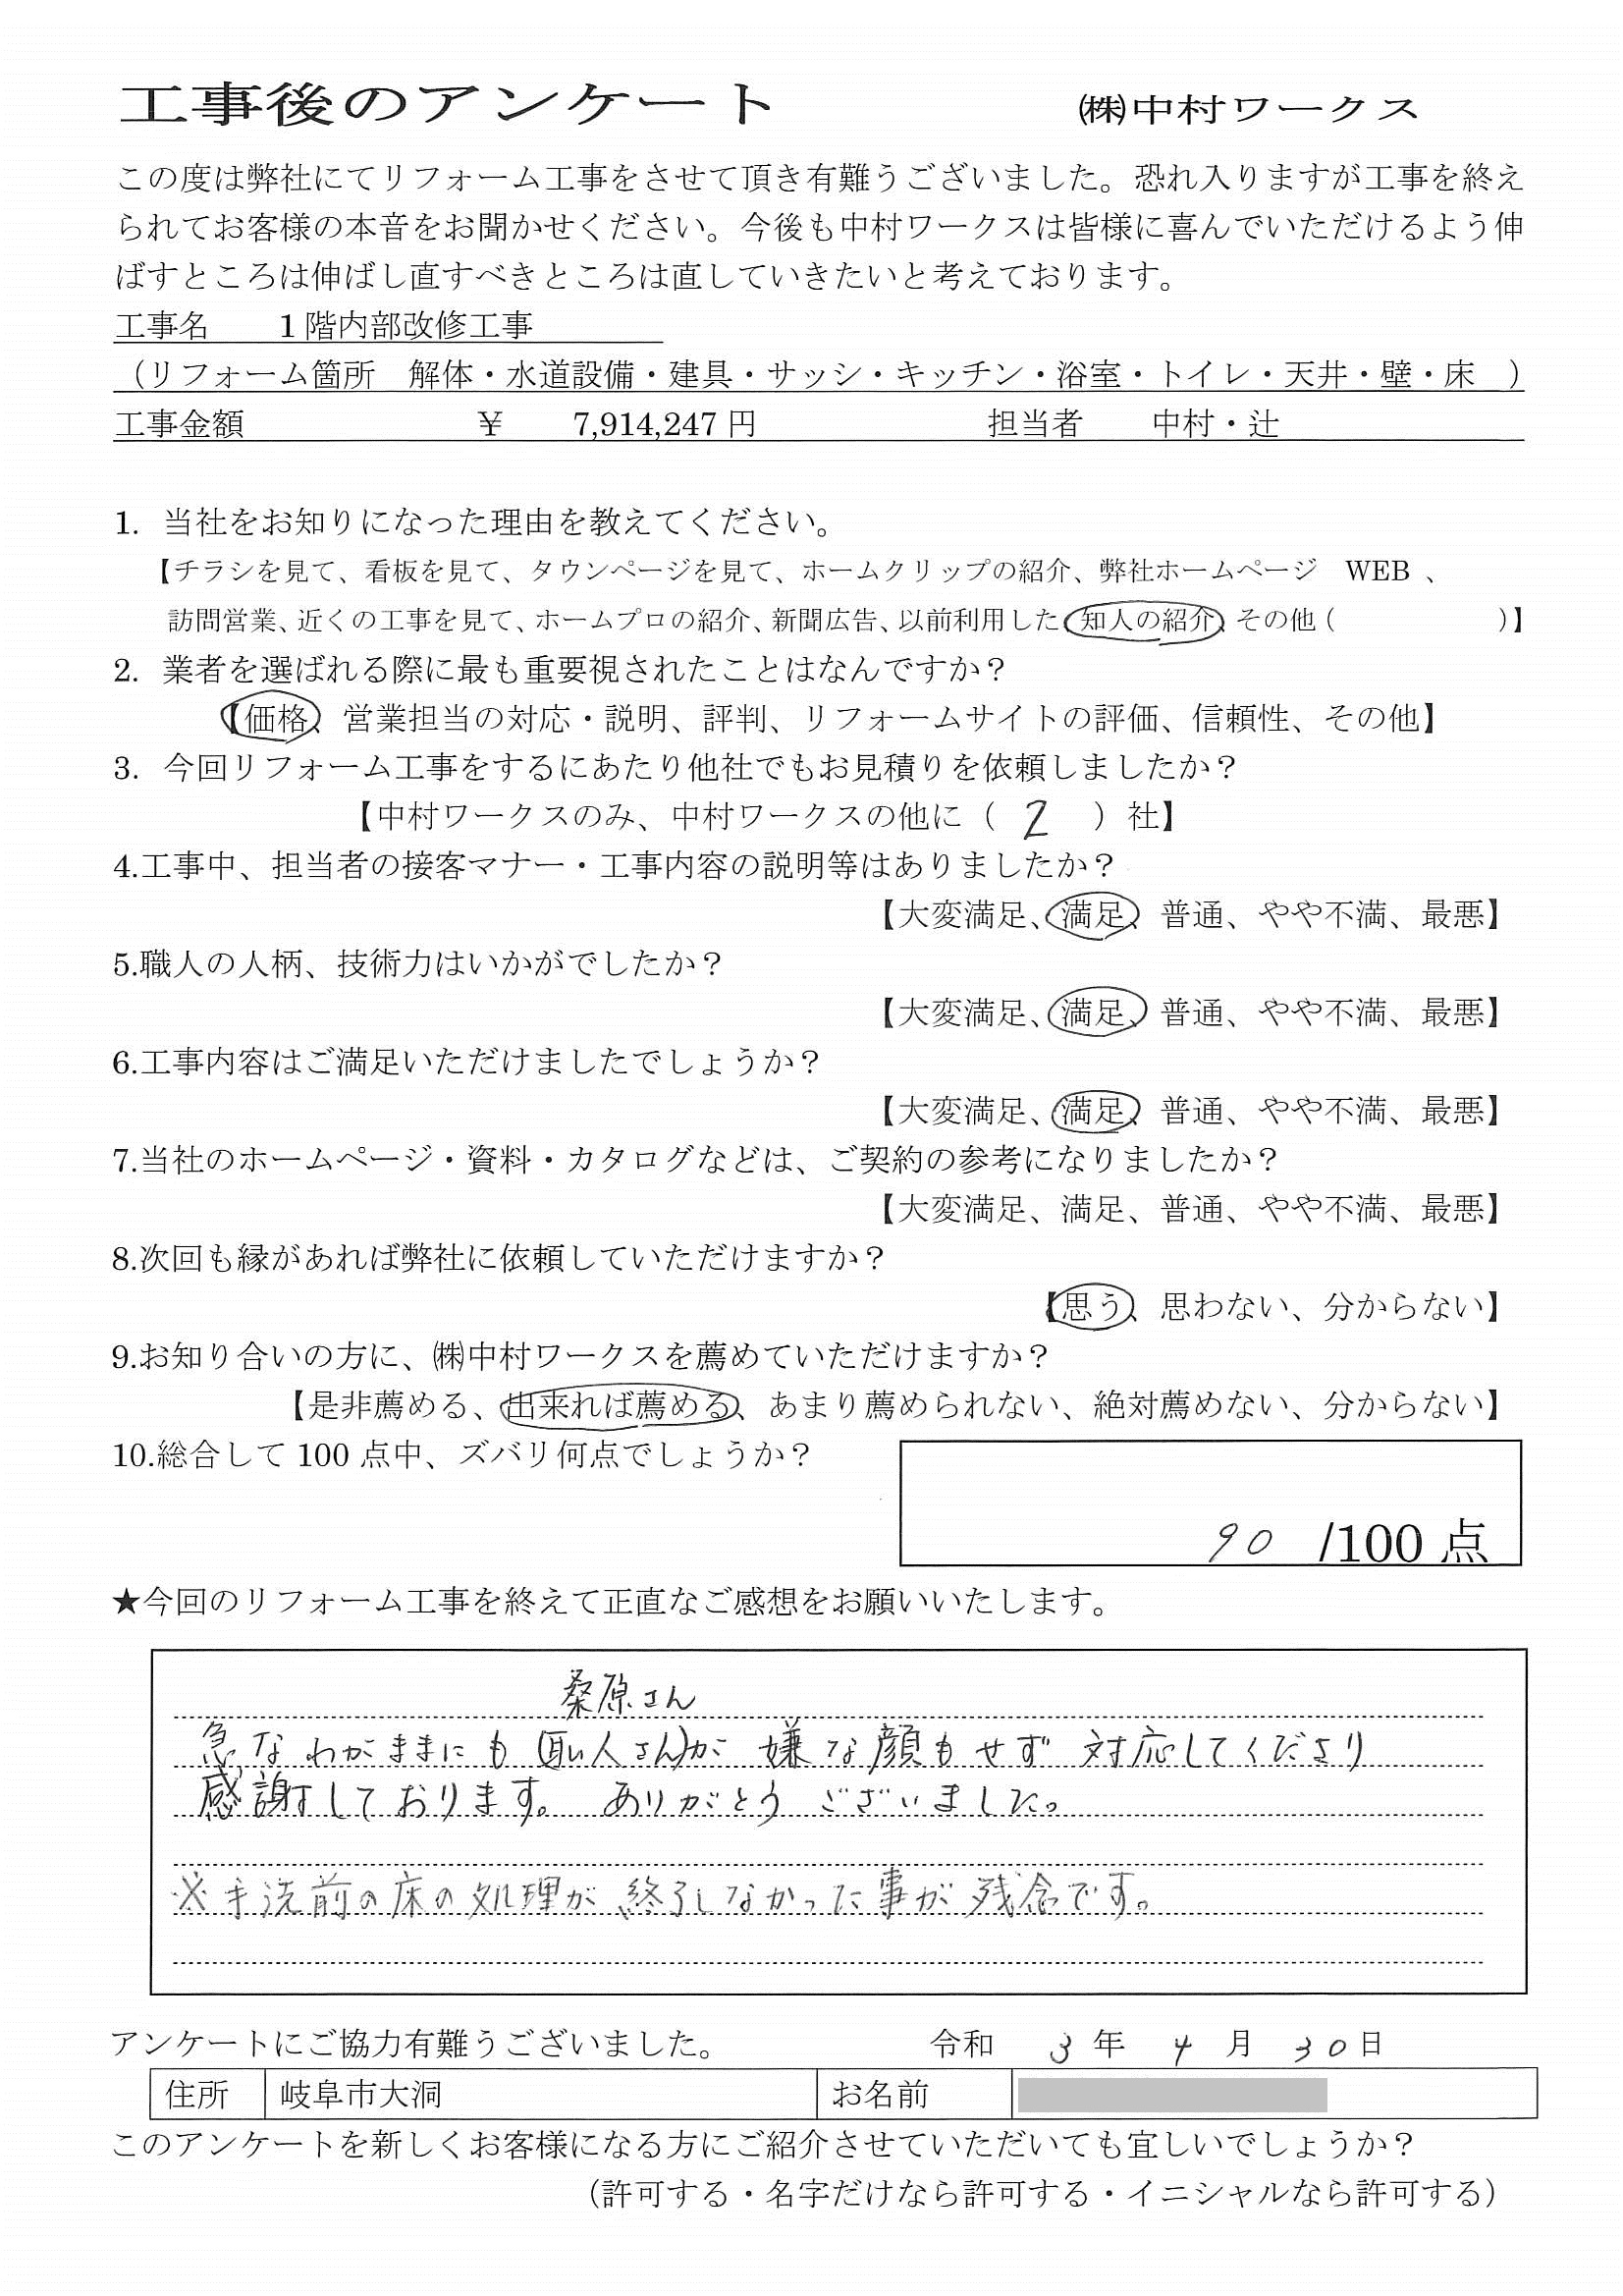 工事後のアンケート　㈱中村ワークス
この度は弊社にてリフォーム工事をさせて頂き有難うございました。恐れ入りますが工事を終え
られてお客様の本音をお聞かせください。今後も中村ワークスは皆様に喜んでいただけるよう伸
ばすところは伸ばし直すべきところは直していきたいと考えております。
工事名　1 階内部改修工事
（リフォーム箇所　解体・水道設備・建具・サッシ・キッチン・浴室・トイレ・天井・壁・床　）
工事金額　￥　7,914,247 円　担当者　中村・辻
1. 当社をお知りになった理由を教えてください。
【チラシを見て、看板を見て、タウンページを見て、ホームクリップの紹介、弊社ホームページ　WEB 、
訪問営業、近くの工事を見て、ホームプロの紹介、新聞広告、以前利用した、知人の紹介、その他（　　　）】
2. 業者を選ばれる際に最も重要視されたことはなんですか？
【価格、営業担当の対応・説明、評判、リフォームサイトの評価、信頼性、その他】
3. 今回リフォーム工事をするにあたり他社でもお見積りを依頼しましたか？
【中村ワークスのみ、中村ワークスの他に（ 2 ）社】
4.工事中、担当者の接客マナー・工事内容の説明等はありましたか？
【大変満足、満足、普通、やや不満、最悪】
5.職人の人柄、技術力はいかがでしたか？
【大変満足、満足、普通、やや不満、最悪】
6.工事内容はご満足いただけましたでしょうか？
【大変満足、満足、普通、やや不満、最悪】
7.当社のホームページ・資料・カタログなどは、ご契約の参考になりましたか？
【大変満足、満足、普通、やや不満、最悪】
8.次回も縁があれば弊社に依頼していただけますか？
【思う、思わない、分からない】
9.お知り合いの方に、㈱中村ワークスを薦めていただけますか？
【是非薦める、出来れば薦める、あまり薦められない、絶対薦めない、分からない】
10.総合して 100 点中、ズバリ何点でしょうか？
90 /100 点
★今回のリフォーム工事を終えて正直なご感想をお願いいたします。
桑原さん
急なわがままにも(職人さん)が 嫌な顔もせず 対応してくださり
感謝しております。 ありがとう ございました。
※手洗前の床の処理が 終了しなかった事が 残念です。
アンケートにご協力有難うございました。　令和 3 年 4 月 30 日
住所　岐阜市大洞　お名前
このアンケートを新しくお客様になる方にご紹介させていただいても宜しいでしょうか？
（許可する・名字だけなら許可する・イニシャルなら許可する）